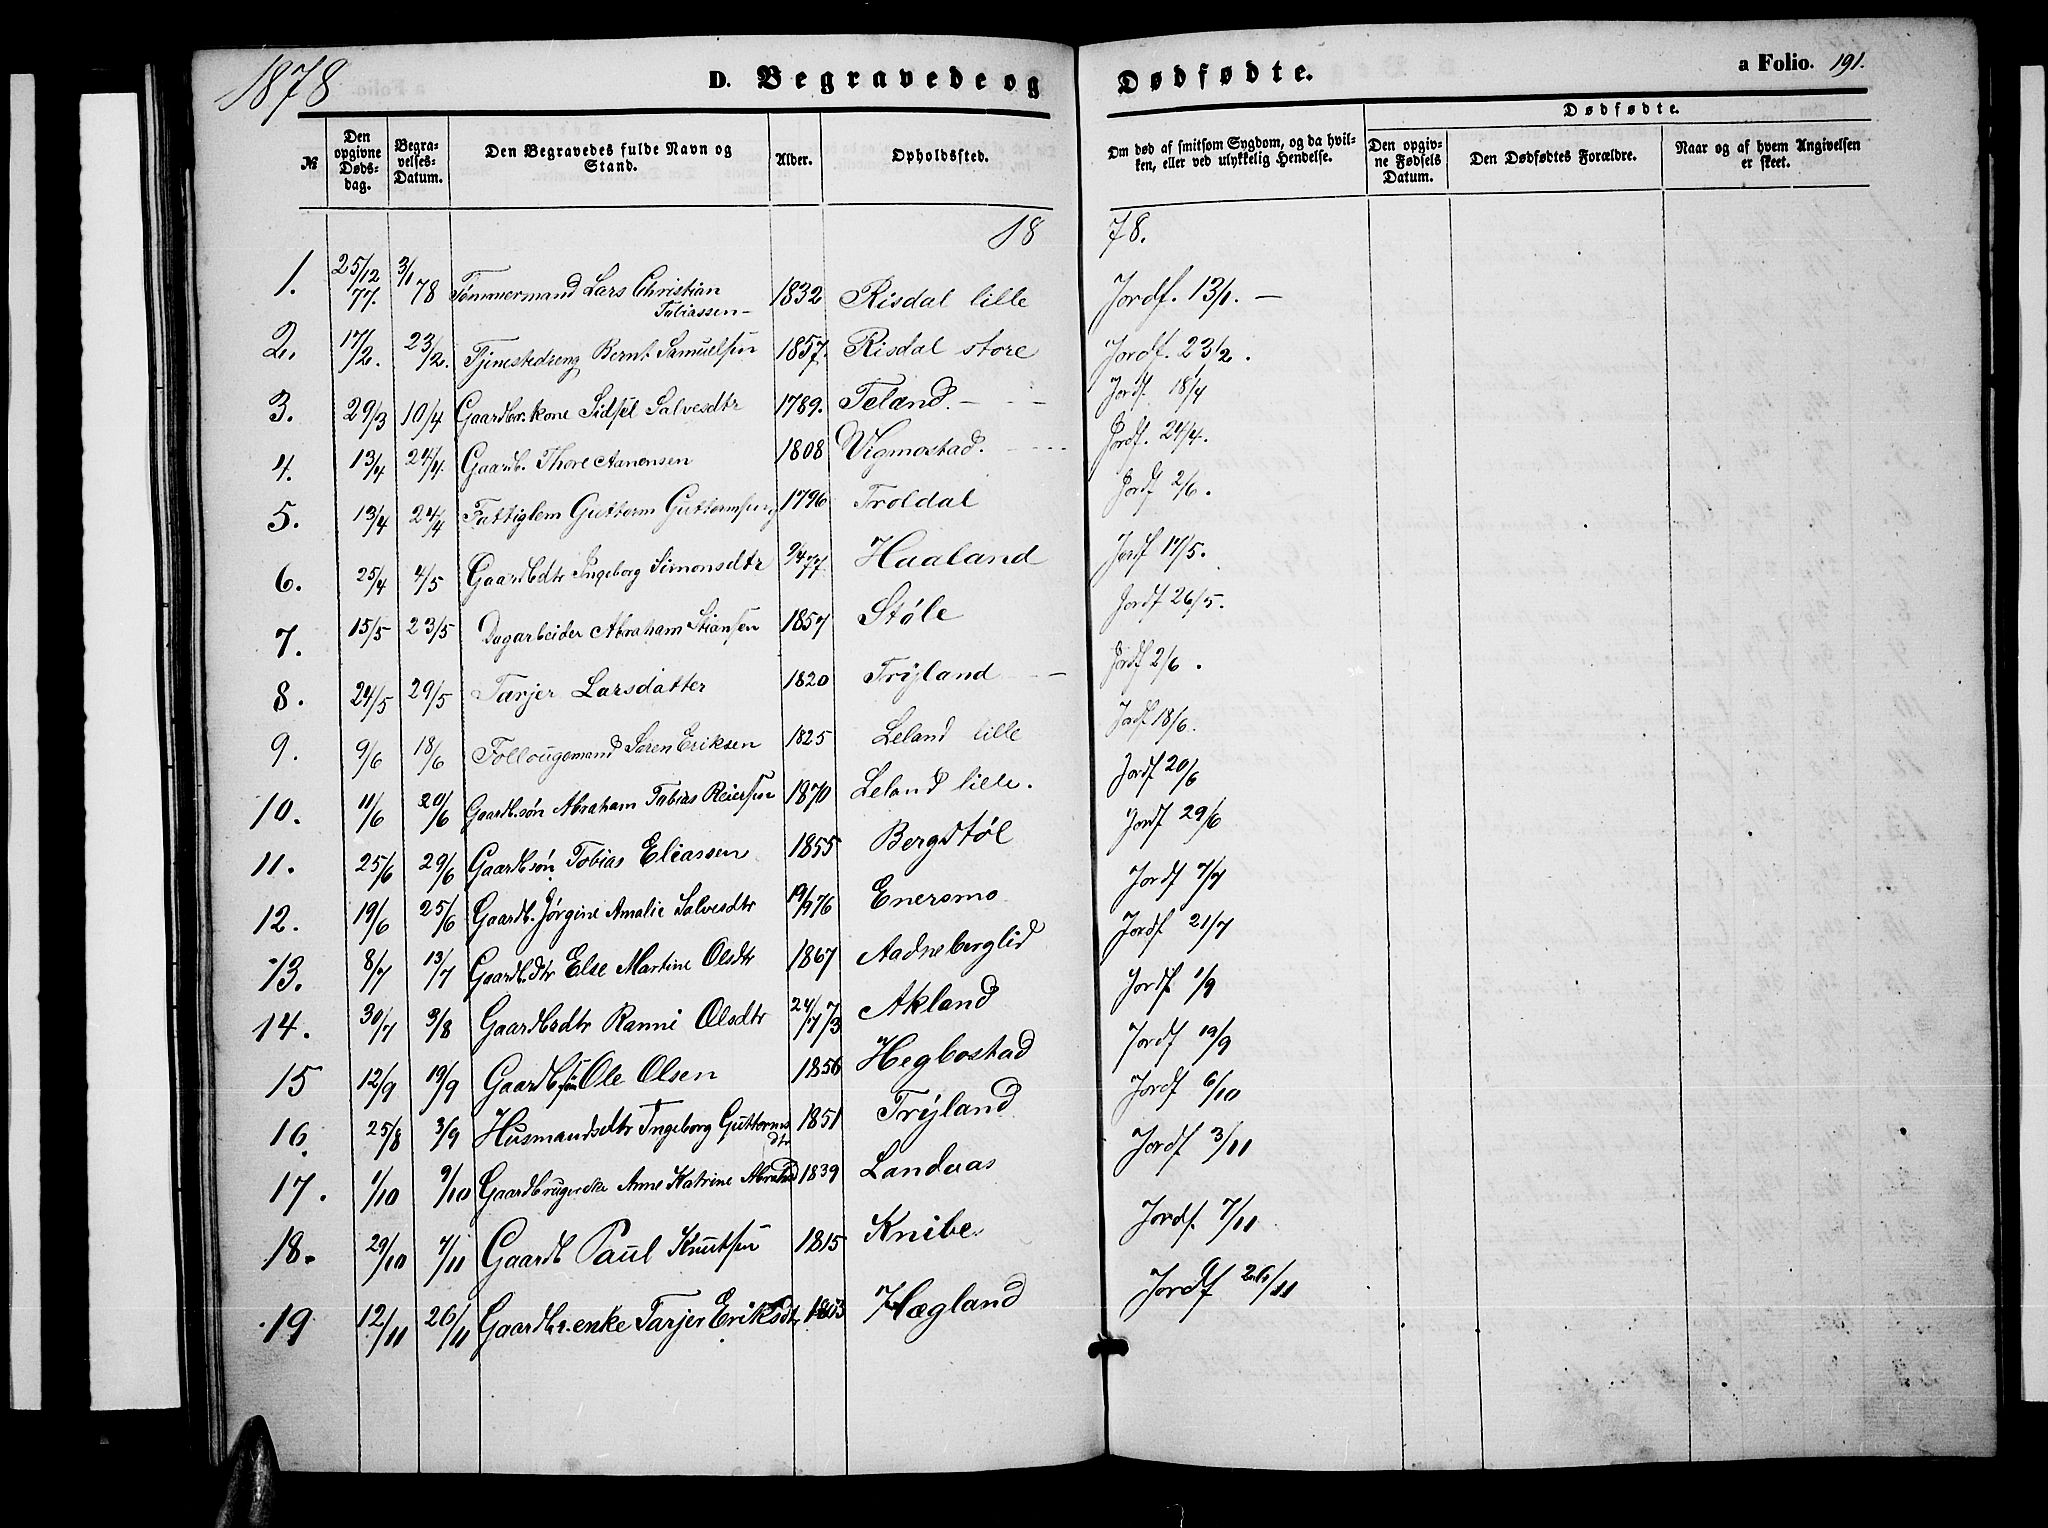 1878
D. Begravede og Dødfødte.
a Folio. 191.
№ Den opgivne Dødsdag. Begravelses-Datum. Den Begravedes fulde Navn og Stand. Alder. Opholdssted. Om død af smitsom Sygdom, og da hvilken, eller ved ulykkelig Hendelse. Dødfødte. Den opgivne Fødsels Datum. Den Dødfødtes Forældre. Naar og af hvem Angivelsen er skeet.
1878.
1. 25/12 77. 3/1 78 Tømmermand Lars Christian Tobiassen 1832 Risdal lille Jordf. 13/1. —
2. 17/2. 23/2. Bernt Samuelsen 1857. Risdal store Jordf. 23/2.
3. 29/3 10/4 Gaardbr.kone Sidsel Salvesdtr 1789. Feland. Jordf. 18/4
4. 13/4 24/4 Gaardb. Thore Aanensen 1808 Vigmostad. Jordf. 24/4.
5. 13/4 24/4 Fattiglem Guttorm 1796 Troldal Jordf 2/6.
6. 25/4 4/5 Gaardbdtr Ingeborg Simonsdtr 9/4 77 Haaland Jordf 17/5.
7. 15/5 23/5 Dagarbeider Abraham Stiansen 1857 Støle Jordf 26/5.
8. 24/5 29/5 Tarjer Larsdatter 1820 Trÿland Jordf 2/6.
9. 9/6 18/6 Follougemand Søren Eriksen 1825 Leland lille Jordf 18/6.
10. 11/6 20/6 Gaardb.søn Abraham Tobias Reiersen 1870 Leland lille. Jordf 20/6
11. 25/6 29/6 Gaardbsøn Tobias Eliassen 1855 Bergstøl Jordf 29/6
12. 19/6 25/6 Gaardb. Jørgine Amalie Salvesdtr 19/9 76 Enersmo Jordf 7/7
13. 8/7 13/7 Gaardb.dtr Else Martine Olsdtr 1867 Aadneberglid Jordf 21/7
14. 30/7 3/8 Gaardbrdtr Ranni Olsdtr 24/7 73 Akland Jordf 1/9
15 12/9 19/9 Gaardbsøn Ole Olsen 1856 Hegbostad Jordf 19/9
16. 25/8 3/9 Husmandsdtr Ingeborg Guttormsdtr 1851 Trÿland Jordf 6/10
17. 1/10 9/10 Anne Katrine 1839 Landaas Jordf 3/11
18. 29/10 7/11 Gaardb Paul Knutsen 1815 Knibe Jordf. 7/11
19 12/11 26/11 Gaardbr.enke Tarjer Eriksdtr 1803 Hægland Jordf 26/11